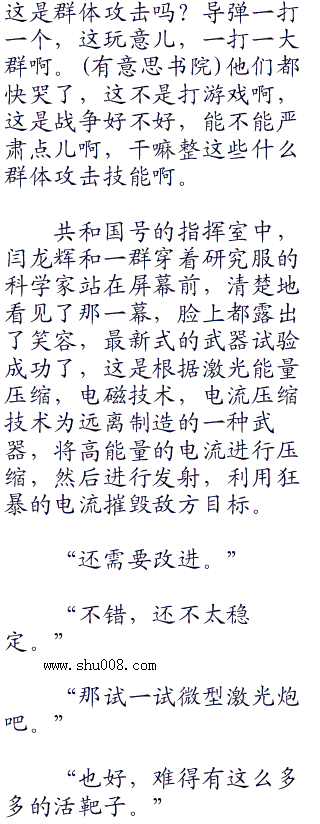 这是群体攻击吗？导弹一打
一个，这玩意儿，一打一大
群啊。(有意思书院)他们都
快哭了，这不是打游戏啊，
这是战争好不好，能不能严
肃点儿啊，干嘛整这些什么
群体攻击技能啊。
共和国号的指挥室中，
闫龙辉和一群穿着研究服的
科学家站在屏幕前，清楚地
看见了那一幕，脸上都露出
了笑容，最新式的武器试验
成功了，这是根据激光能量
压缩，电磁技术，电流压缩
技术为远离制造的一种武
器，将高能量的电流进行压
缩，然后进行发射，利用狂
暴的电流摧毁敌方目标。
“还需要改进。”
“不错，还不太稳
定。”
www.shu008.com
“那试一试微型激光炮
吧。”
“也好，难得有这么多
多的活靶子。”